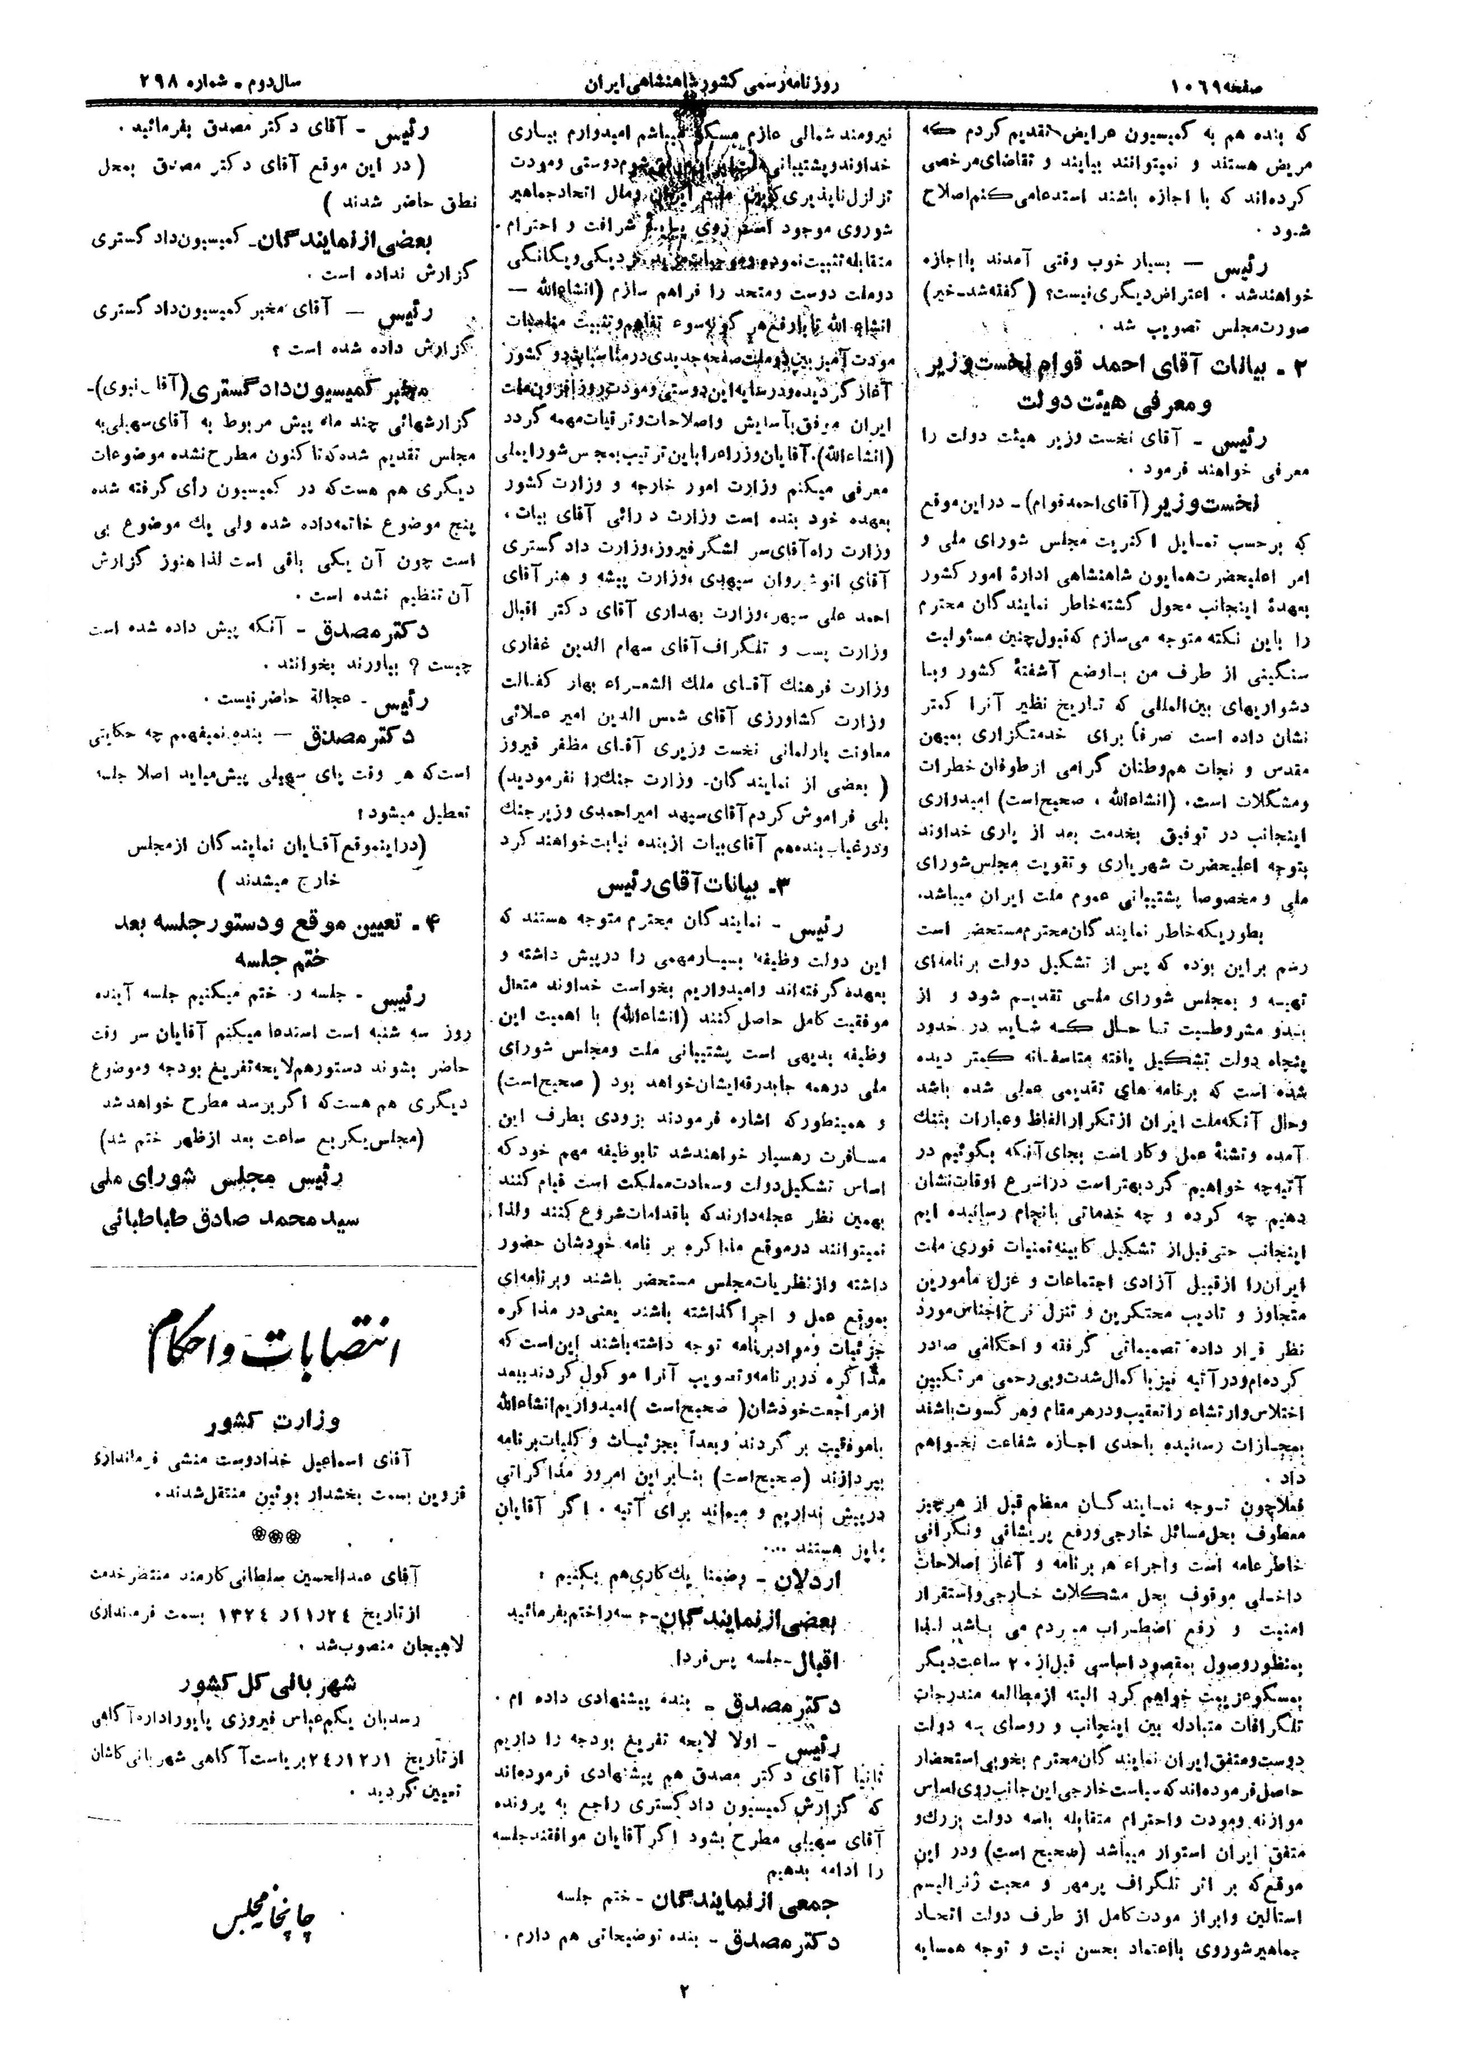 صفحه ۱۰۶۹
روزنامه رسمی کشور شاهنشاهی ایران
سال دوم - شماره ۲۹۸
که بنده هم به کمیسیون عرایض تقدیم کردم که
مریض هستند و نمیتوانند بیایند و تقاضای مرخصی
کرده‌اند که با اجازه باشند استدعا می کنم اصلاح
شود .
رئیس – بسیار خوب وقتی آمدند با اجازه
خواهند شد . اعتراض دیگری نیست؟ (گفته شد-خیر)
صورت مجلس تصویب شد .
۲ - بیانات آقای احمد قوام نخست وزیر
و معرفی هیئت دولت
رئیس - آقای نخست وزیر هیئت دولت را
معرفی خواهند فرمود .
نخست وزیر (آقای احمد قوام) - در این موقع
که برحسب تمایل اکثریت مجلس شورای ملی و
امر اعلیحضرت همایون شاهنشاهی ادارهٔ امور کشور
بعهدهٔ اینجانب محول گشته خاطر نمایندگان محترم
را باین نکته متوجه می‌سازم که قبول چنین مسئولیت
سنگینی از طرف من با وضع آشفتهٔ کشور و با
دشواریهای بین‌المللی که تاریخ نظیر آنرا کمتر
نشان داده است صرفاً برای خدمتگزاری بمیهن
مقدس و نجات هم وطنان گرامی از طوفان خطرات
و مشکلات است. (انشاءالله ، صحیح است) امیدواری
اینجانب در توفیق بخدمت بعد از یاری خداوند
بتوجه اعلیحضرت شهریاری و تقویت مجلس شورای
ملی و مخصوصا پشتیبانی عموم ملت ایران میباشد.
بطوریکه خاطر نمایندگان محترم مستحضر است
رسم براین بوده که پس از تشکیل دولت برنامه‌ای
تهیه و بمجلس شورای ملی تقدیم شود و از
بدو مشروطیت تا حال که شاید در حدود
پنجاه دولت تشکیل یافته متاسفانه کمتر دیده
شده است که برنامه های تقدیمی عملی شده باشد
و حال آنکه ملت ایران از تکرار الفاظ و عبارات بتنگ
آمده و تشنهٔ عمل و کار است بجای آنکه بگوئیم در
آتیه چه خواهیم کرد بهتر است در اسرع اوقات نشان
دهیم چه کرده و چه خدماتی بانجام رسانیده ایم
اینجانب حتی قبل از تشکیل کابینه تمنیات فوری ملت
ایران را از قبیل آزادی اجتماعات و عزل مأمورین
متجاوز و تادیب محتکرین و تنزل نرخ اجناس مورد
نظر قرار داده تصمیماتی گرفته و احکامی صادر
کرده‌ام و در آتیه نیز با کمال شدت و بی رحمی مرتکبین
اختلاس و ارتشاء را تعقیب و در هر مقام و هر کسوت باشند
بمجازات رسانیده باحدی اجازه شفاعت نخواهم
داد .
فعلا چون توجه نمایندگان معظم قبل از هر چیز
معطوف بحل مسائل خارجی و رفع پریشانی و نگرانی
خاطر عامه است و اجراء هر برنامه و آغاز اصلاحات
داخلی موقوف بحل مشکلات خارجی و استقرار
امنیت و رفع اضطراب مردم می باشد لهذا
بمنظور وصول بمقصود اساسی قبل از ۲۰ ساعت دیگر
بمسکو عزیمت خواهم کرد البته از مطالعه مندرجات
تلگرافات متبادله بین اینجانب و روسای سه دولت
دوست و متفق ایران نمایندگان محترم بخوبی استحضار
حاصل فرموده‌اند که سیاست خارجی این جانب روی اساس
موازنه و مودت و احترام متقابله با سه دولت بزرک و
متفق ایران استوار میباشد (صحیح است) و در این
موقع که بر اثر تلگراف پرمهر و محبت ژنرالیسم
استالین و ابراز مودت کامل از طرف دولت اتحاد
جماهیر شوروی با اعتماد بحسن نیت و توجه همسایه
نیرومند شمالی عازم مسکو میباشم امیدوارم بیاری
خداوند و پشتیبانی ملت ایران شوم دوستی و مودت
تزلزل ناپذیری که بین ملت ایران و ملل اتحاد جماهیر
شوروی موجود است روی پایه شرافت و احترام
متقابله تثبیت نموده و موجبات مزید نزدیکی و یگانگی
دو ملت دوست و متحد را فراهم سازم (انشاءالله –
انشاء الله تا با رفع هر گونه سوء تفاهم و تثبیت مناسبات
مودت آمیز بین دو ملت صفحه جدیدی در مناسبات دو کشور
آغاز گردیده و در سایه این دوستی و مودت روز افزون ملت
ایران موفق بآسایش و اصلاحات و ترقیات مهمه گردد
(انشاءالله). آقایان وزراء را باین ترتیب بمجلس شورایملی
معرفی میکنم وزارت امور خارجه و وزارت کشور
بعهده خود بنده است وزارت دارائی آقای بیات ،
وزارت راه آقای سر لشگر فیروز، وزارت دادگستری
آقای انوشیروان سپهبدی، وزارت پیشه و هنر آقای
احمد علی سپهر، وزارت بهداری آقای دکتر اقبال
وزارت پست و تلگراف آقای سهام الدین غفاری
وزارت فرهنك آقای ملك الشعراء بهار کفالت
وزارت کشاورزی آقای شمس الدین امیر علائی
معاونت پارلمانی نخست وزیری آقای مظفر فیروز
( بعضی از نمایندگان- وزارت جنك را نفرمودید)
بلی فراموش کردم آقای سپهبد امیراحمدی وزیر جنك
و در غیاب بنده هم آقای بیات از بنده نیابت خواهند کرد
۳ - بیانات آقای رئیس
رئیس - نمایندگان محترم متوجه هستند که
این دولت وظیفه بسیار مهمی را در پیش داشته و
بعهده گرفته‌اند و امیدواریم بخواست خداوند متعال
موفقیت کامل حاصل کنند (انشاءالله) با اهمیت این
وظیفه بدیهی است پشتیبانی ملت و مجلس شورای
ملی در همه جا بدرقه ایشان خواهد بود (صحیح است)
و همینطور که اشاره فرمودند بزودی بطرف این
مسافرت رهسپار خواهند شد تا بوظیفه مهم خود که
اساس تشکیل دولت و سعادت مملکت است قیام کنند
بهمین نظر عجله دارند که باقدامات شروع کنند ولذا
نمیتوانند در موقع مذاکره برنامه خودشان حضور
داشته و از نظریات مجلس مستحضر باشند و برنامه‌ای
بموقع عمل و اجرا گذاشته باشند یعنی در مذاکره
جزئیات و مواد برنامه توجه داشته باشند این است که
مذاکره در برنامه و تصویب آنرا موکول کردند ببعد
از مراجعت خودشان (صحیح است) امیدواریم انشاءالله
باموفقیت برگردند و بعداً بجزئیات و کلیات برنامه
بپردازند (صحیح است) بنابر این امروز مذاکراتی
در پیش نداریم و میماند برای آتیه . اگر آقایان
مایل هستند ...
اردلان - و ضمنا یك کاری هم بکنیم
بعضی از نمایندگان - جلسه را ختم بفرمائید
اقبال - جلسه پس فردا.
دکتر مصدق - بنده پیشنهادی داده ام .
رئیس - اولا لایحه تفریغ بودجه را داریم
ثانیا آقای دکتر مصدق هم پیشنهادی فرموده‌اند
که گزارش کمیسیون دادگستری راجع به پرونده
آقای سهیلی مطرح بشود اگر آقایان موافقند جلسه
را ادامه بدهیم
جمعی از نمایندگان - ختم جلسه
دکتر مصدق - بنده توضیحاتی هم دارم .
رئیس - آقای دکتر مصدق بفرمائید .
( در این موقع آقای دکتر مصدق بمحل
نطق حاضر شدند )
بعضی از نمایندگان - کمیسیون دادگستری
گزارش نداده است .
رئیس – آقای مخبر کمیسیون دادگستری
گزارش داده شده است ؟
مخبر کمیسیون دادگستری (آقای نبوی)-
گزارشهائی چند ماه پیش مربوط به آقای سهیلی به
مجلس تقدیم شده که تاکنون مطرح نشده موضوعات
دیگری هم هست که در کمیسیون رأی گرفته شده
پنج موضوع خاتمه داده شده ولی یك موضوع بی
است چون آن یکی باقی است لذا هنوز گزارش
آن تنظیم نشده است .
دکتر مصدق - آنکه پیش داده شده است
چیست ؟ بیاورند بخوانند .
رئیس - عجالة حاضر نیست .
دکتر مصدق – بنده نمیفهمم چه حکایتی
است که هر وقت پای سهیلی پیش میاید اصلا جلسه
تعطیل میشود !
(در اینموقع آقایان نمایندگان از مجلس
خارج میشدند )
۴ - تعیین موقع و دستور جلسه بعد
ختم جلسه
رئیس - جلسه را ختم میکنیم جلسه آینده
روز سه شنبه است استدعا میکنم آقایان سر وقت
حاضر بشوند دستور هم لایحه تفریغ بودجه و موضوع
دیگری هم هست که اگر برسد مطرح خواهد شد
(مجلس یکربع ساعت بعد از ظهر ختم شد)
رئیس مجلس شورای ملی
سید محمد صادق طباطبائی
انتصابات و احکام
وزارت کشور
آقای اسماعیل خدادوست منشی فرمانداری
قزوین بسمت بخشدار بوئین منتقل شدند.
آقای عبدالحسین سلطانی کارمند منتظر خدمت
از تاریخ ۱۳۲۴/۱۱/۲۴ بسمت فرمانداری
لاهیجان منصوب شد .
شهربانی کل کشور
رسدبان یکم عباس فیروزی پایور اداره آگاهی
از تاریخ ۲۴/۱۲/۱ بریاست آگاهی شهربانی کاشان
تعیین گردید .
چاپخانه مجلس
۲